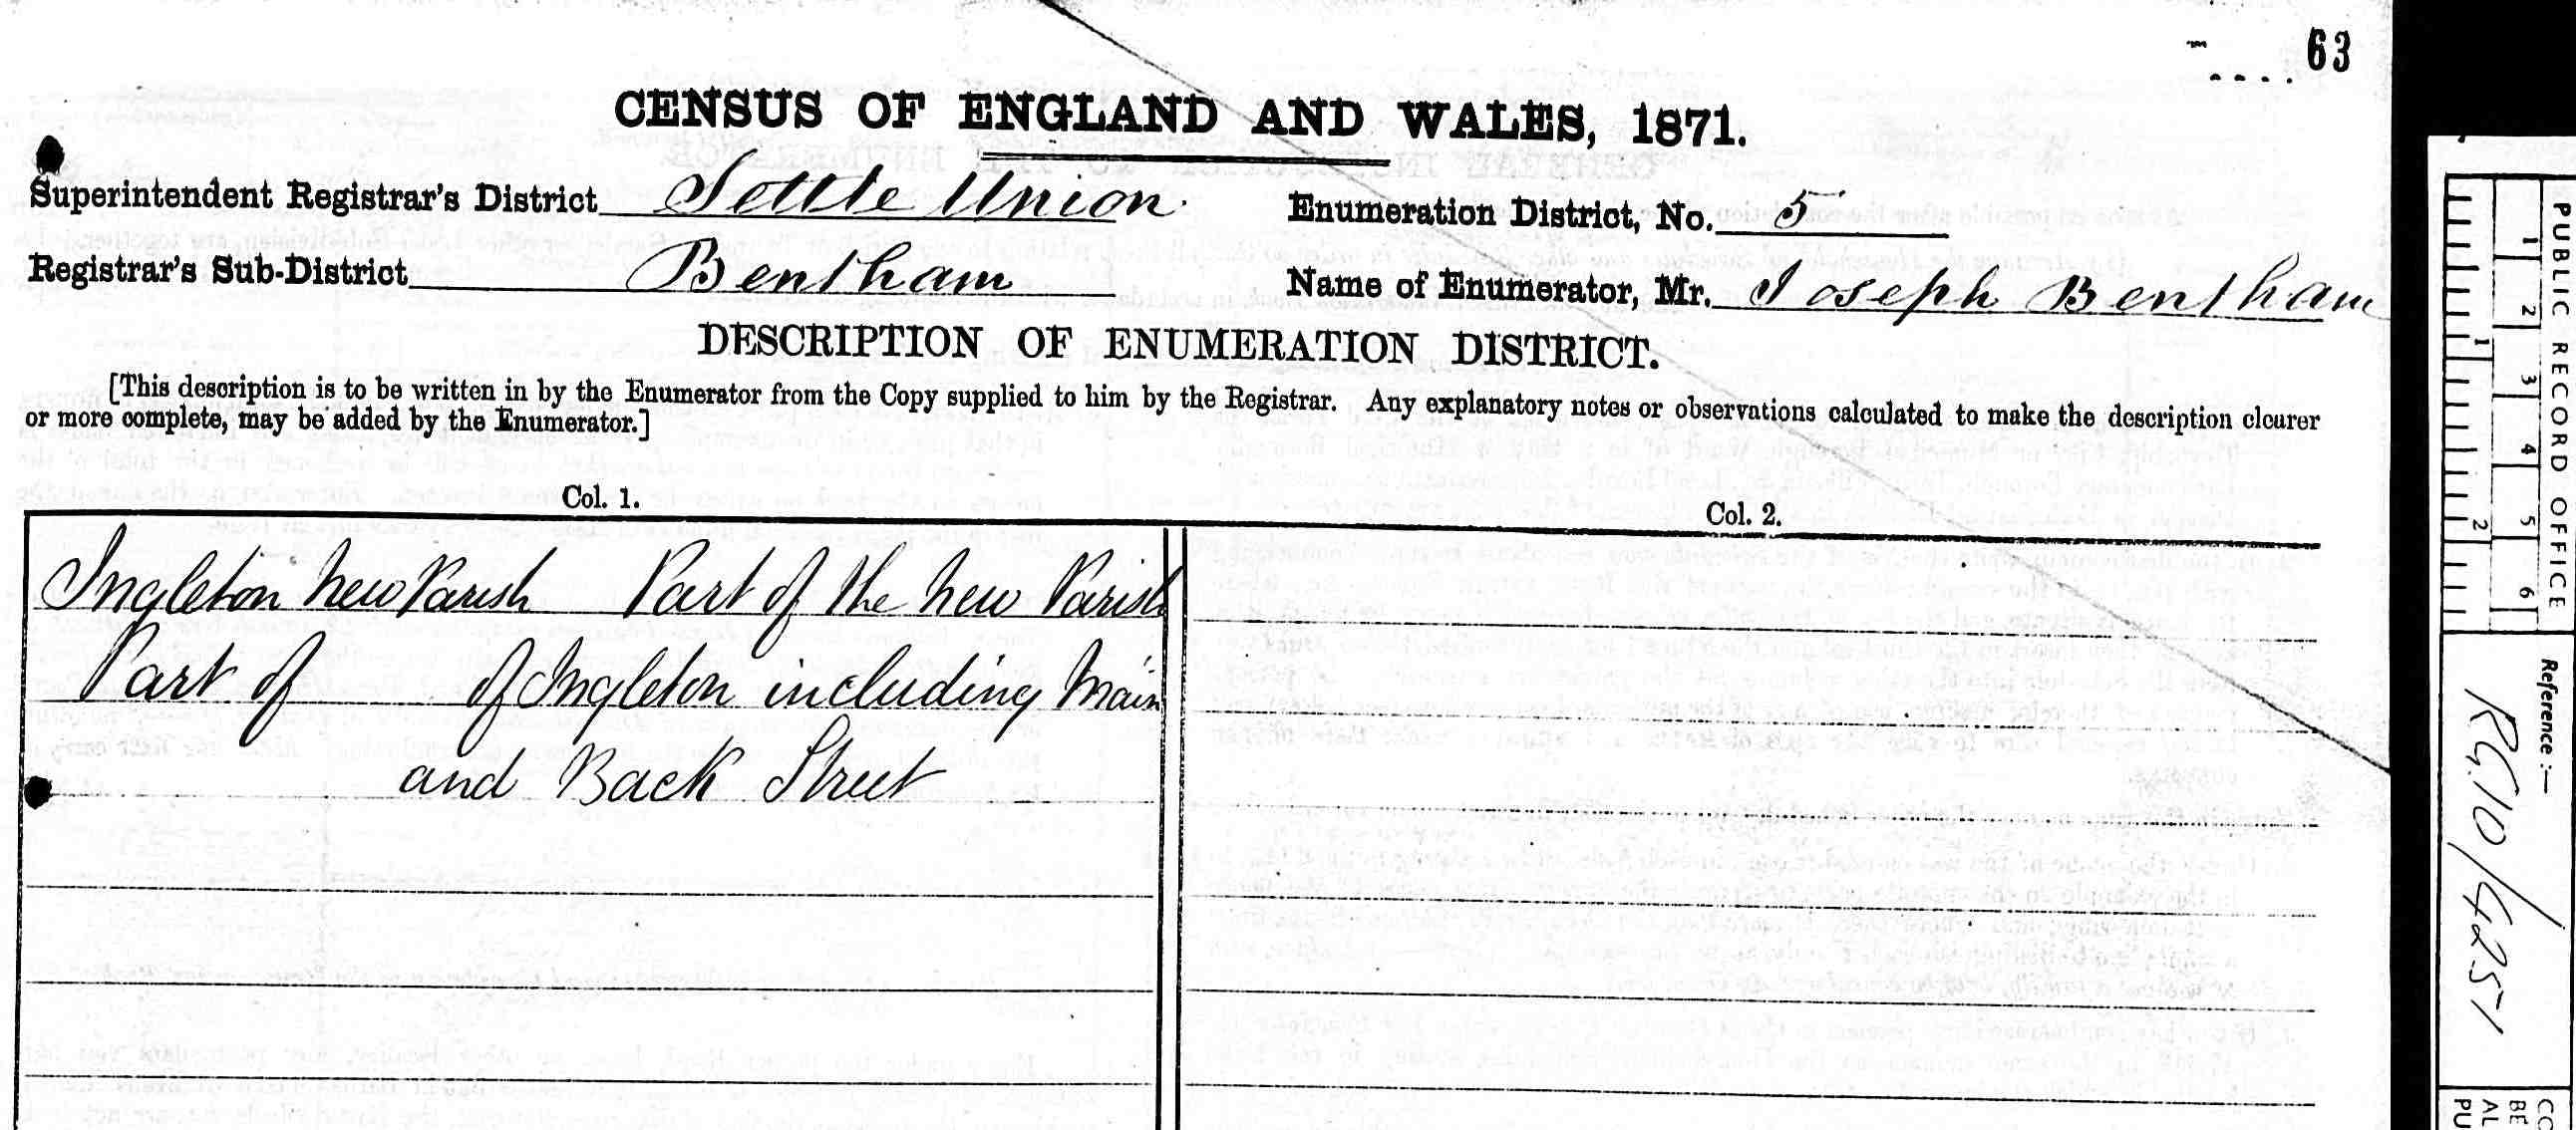 63
CENSUS OF ENGLAND AND WALES, 1871.
Superintendent Registrar's District Settle Union
Enumeration District, No. 5
Registrar's Sub-District Bentham
Name of Enumerator, Mr. Joseph Bentham
DESCRIPTION OF ENUMERATION DISTRICT.
[This description is to be written in by the Enumerator from the Copy supplied to him by the Registrar. Any explanatory notes or observations calculated to make the description clearer
or more complete, may be added by the Enumerator.]
Col. 1.
Col. 2.
Ingleton New Parish Part of the New Parish
Part of of Ingleton including Main
and Back Street
PUBLIC RECORD OFFICE
1 2 3 4 5 6
1 2
Reference :-
RG.10/4251